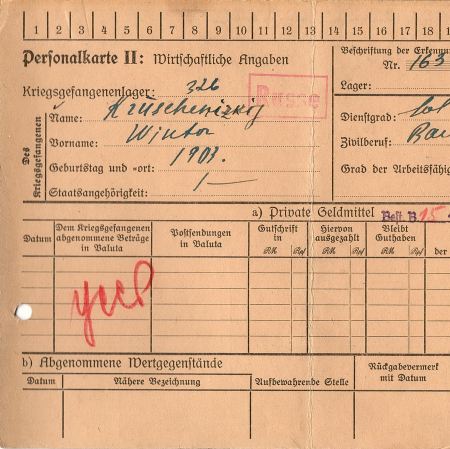 1 2 3 4 5 6 7 8 9 10 11 12 13 14 15 16 17 18
Personalkarte II: Wirtschaftliche Angaben
Beschriftung der Erkennu
Nr. 163
Kriegsgefangenenlager: 326
Lager:
Russe
Des Kriegsgefangenen
Name:
Vorname: Wintor
Geburtstag und -ort: 1903.
Staatsangehörigkeit: 1—
Dienstgrad: Sol
Zivilberuf: Bau
Grad der Arbeitsfähig
a) Private Geldmittel Best. B. 15.
Datum
Dem Kriegsgefangenen abgenommene Beträge in Valuta
Postsendungen in Valuta
Gutschrift in
RM Rpf
Hiervon ausgezahlt
RM Rpf
Bleibt Guthaben
RM Rpf
der
b) Abgenommene Wertgegenstände
Datum
Nähere Bezeichnung
Aufbewahrende Stelle
Rückgabevermerk mit Datum